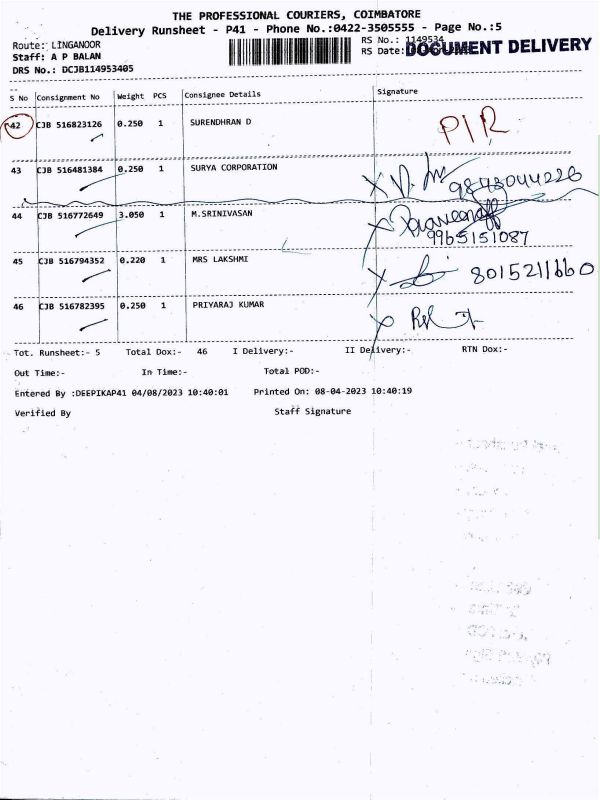 THE PROFESSIONAL COURIERS, COIMBATORE
Delivery Runsheet - P41 - Phone No.:0422-3505555 - Page No.:5
Route: LINGANOOR
RS No.: 1149534
Staff: A P BALAN
RS Date:
DOCUMENT DELIVERY
DRS No.: DCJB114953405
S No Consignment No Weight PCS Consignee Details Signature
42 CJB 516823126 0.250 1 SURENDHRAN D
43 CJB 516481384 0.250 1 SURYA CORPORATION
9843044226
44 CJB 516772649 3.050 1 M.SRINIVASAN
9965151087
45 CJB 516794352 0.220 1 MRS LAKSHMI 8015211660
46 CJB 516782395 0.250 1 PRIYARAJ KUMAR
Tot. Runsheet:- 5 Total Dox:- 46 I Delivery:- II Delivery:- RTN Dox:-
Out Time:- In Time:- Total POD:-
Entered By :DEEPIKAP41 04/08/2023 10:40:01 Printed On: 08-04-2023 10:40:19
Verified By Staff Signature